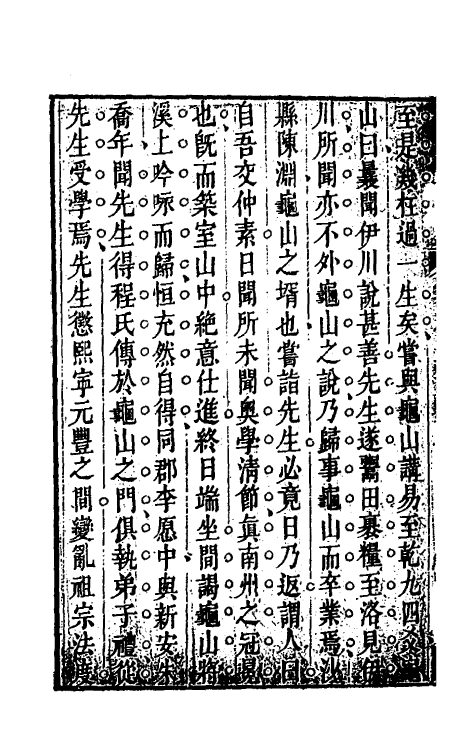 至是幾枉過一生矣嘗與龜山講易至乾九四爻龜
山曰曩聞伊川說甚善先生遂鬻田裹糧至洛見伊
川所聞亦不外龜山之說乃歸事龜山而卒業焉沙
縣陳淵龜山之壻也嘗詣先生必竟日乃返謂人曰
自吾交仲素日聞所未聞奧學清節真南州之冠冕
也既而築室山中絶意仕進終日端坐間謁龜山將
溪上吟咏而歸恒充然自得同郡李愿中與新安朱
喬年聞先生得程氏傳於龜山之門俱執弟子禮從
先生受學焉先生懲熙寧元豐之間變亂祖宗法度